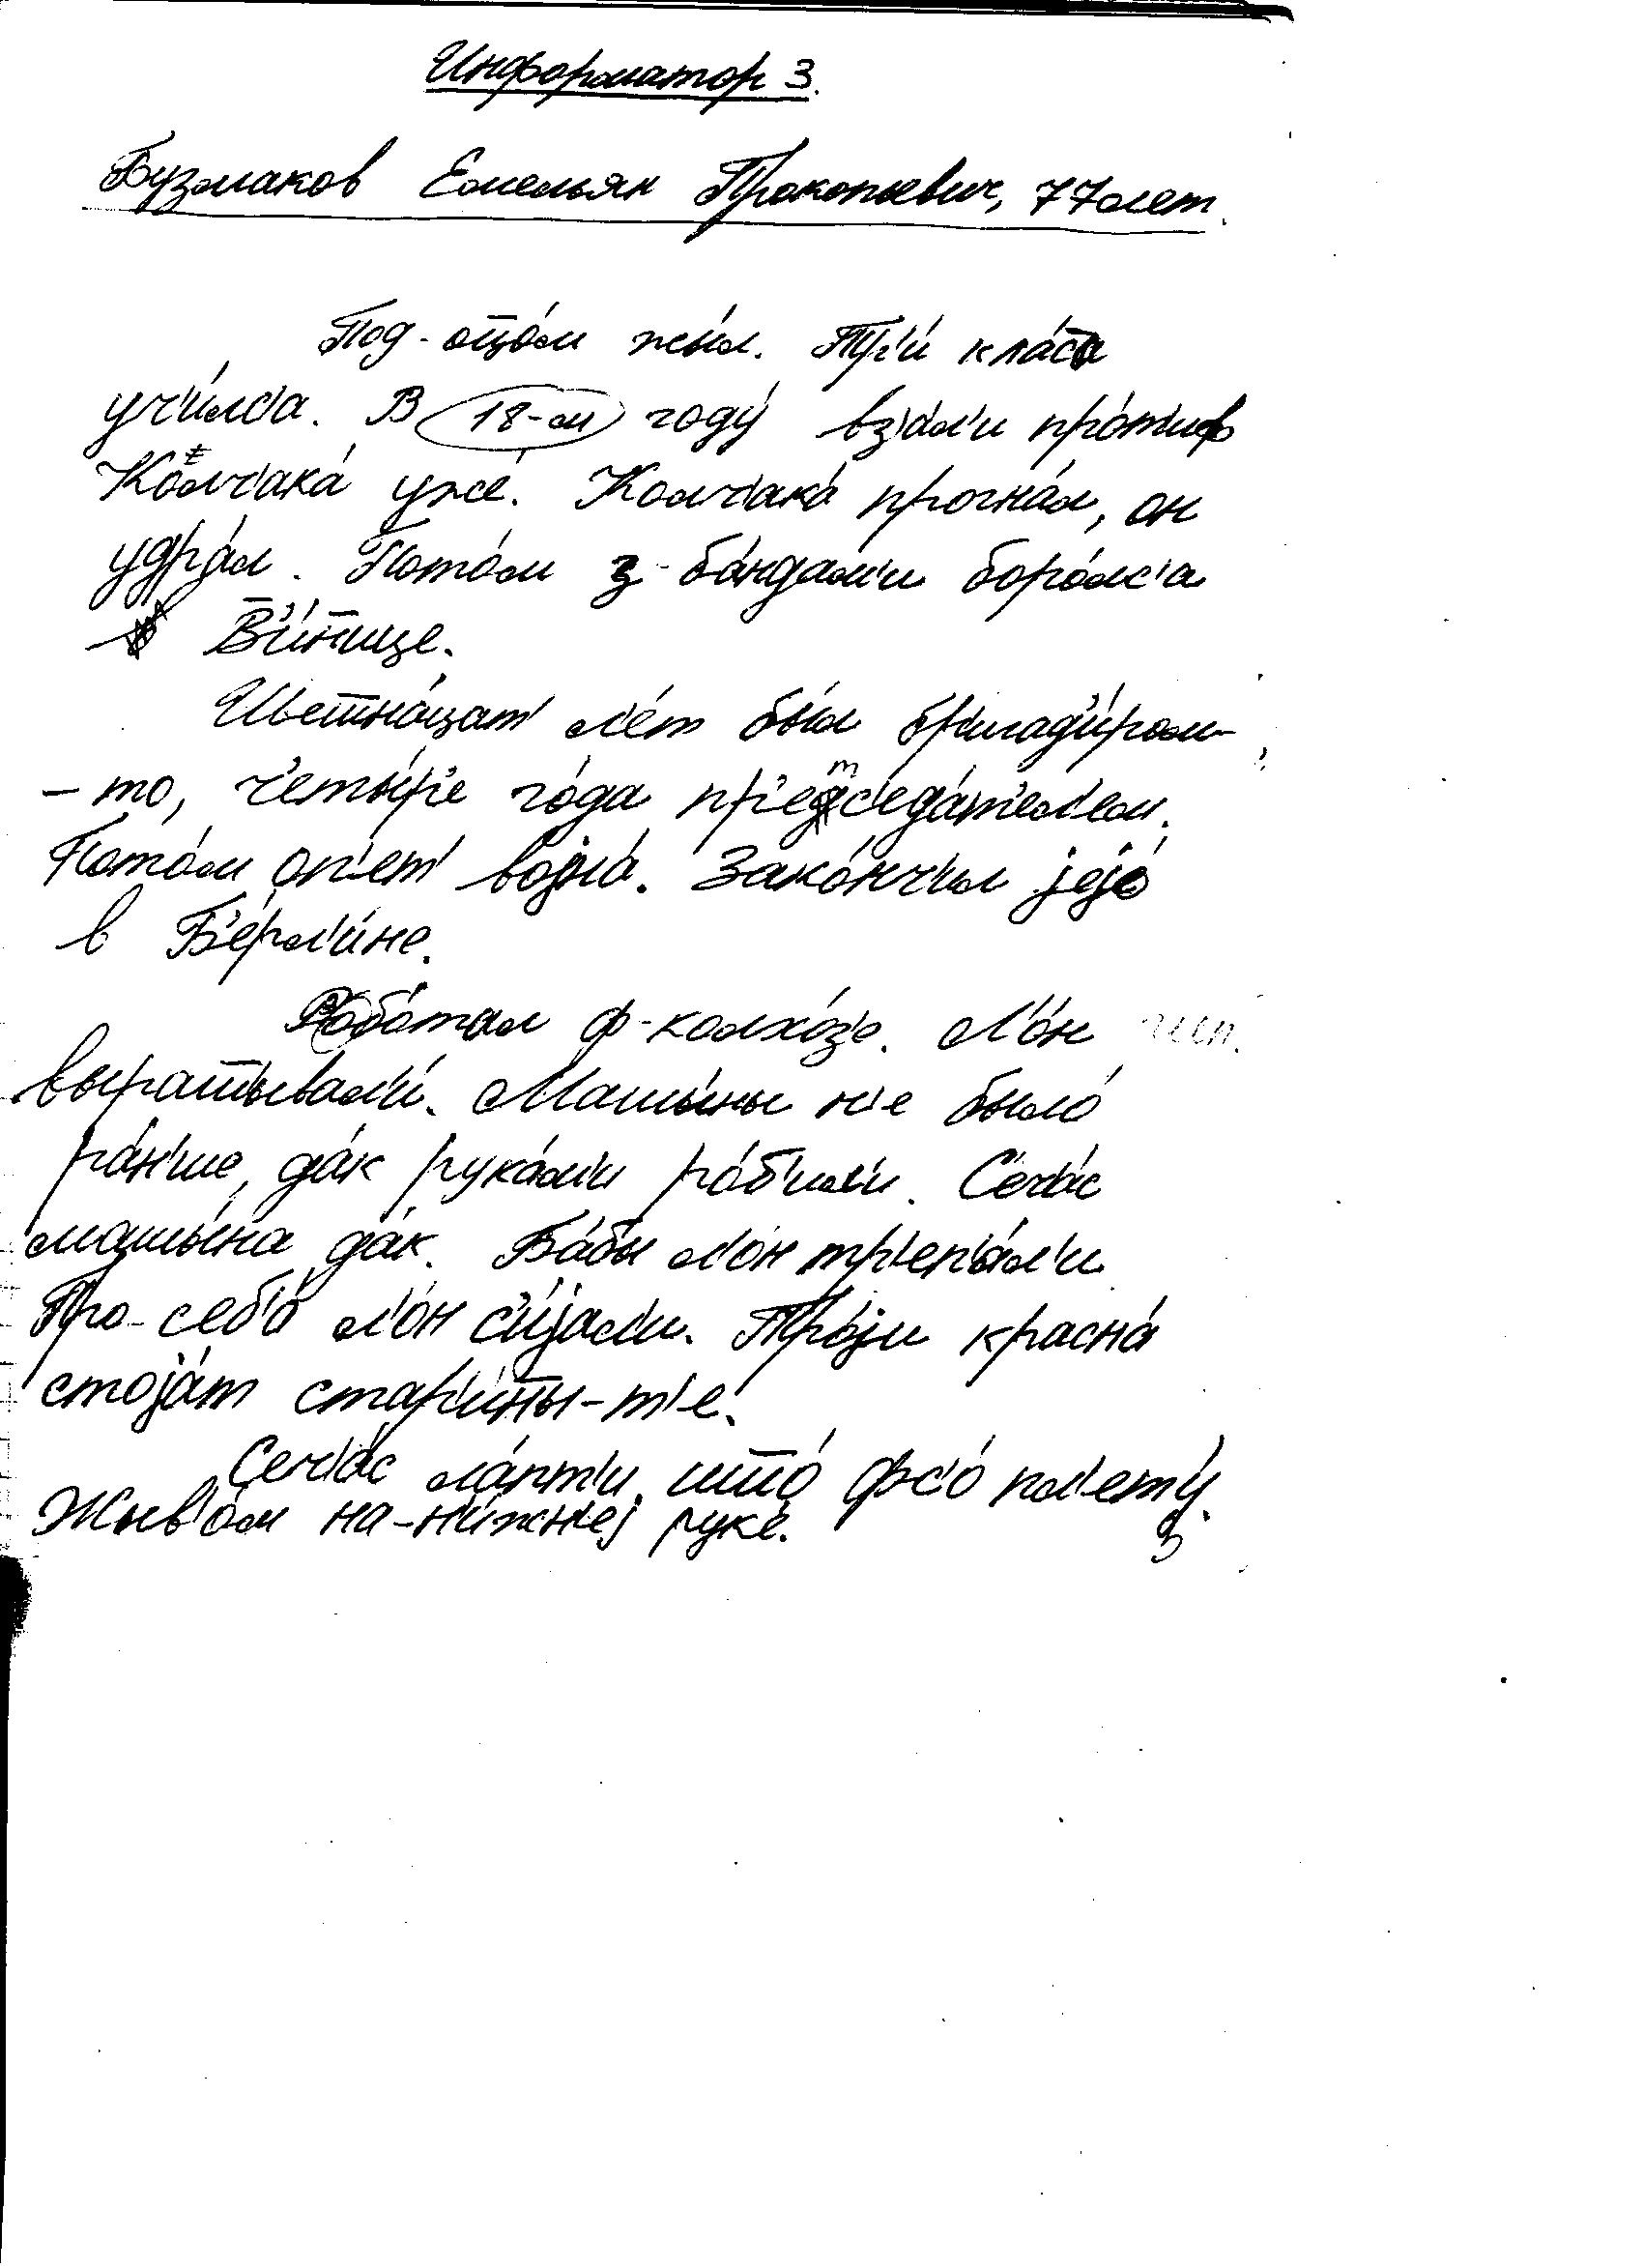 Информатор 3.
Бузмаков Емельян Прокопьевич, 77 лет.
Под-оц̄о́м жы́л. Тр'и́ кла́с̄а
уч'и́лс'а. В 18-м году́ вз'а́л'и про́т'иф
Колч'ака́ уже́. Колч'ака́ прогна́л, он
удра́л. Пото́м з-ба́ндам'и боро́лс'а
В'и́н̄ице.
Шес̄тна́цат' л'е́т бы́л бр'игад'и́ром-
-то, ч'еты́р'е го́да пр'етс'еда́т'ел'ем.
Пото́м оп'е́т' војна́. Зако́нч'ил јејо́
в Б'ерл'и́не.
Робо́тал ф-колхо́з'е. Л'о́н
выраш̄ывал'и́. Машы́ны н'е было́
ра́н'ше, да́к рука́м'и ро́б'ил'и. С'еч'а́с
машы́на да́к. Ба́бы л'о́н тр'еп'а́л'и.
Про-себ'а́ л'о́н с'и́јал'и. Тро́ји красна́
стоја́т стар'и́н̄ы-т'е.
Сеч'а́с ла́пт'и, што́ фс'о́ пл'ету́.
Жыв'о́м на-н'и́жн'еј руке́.